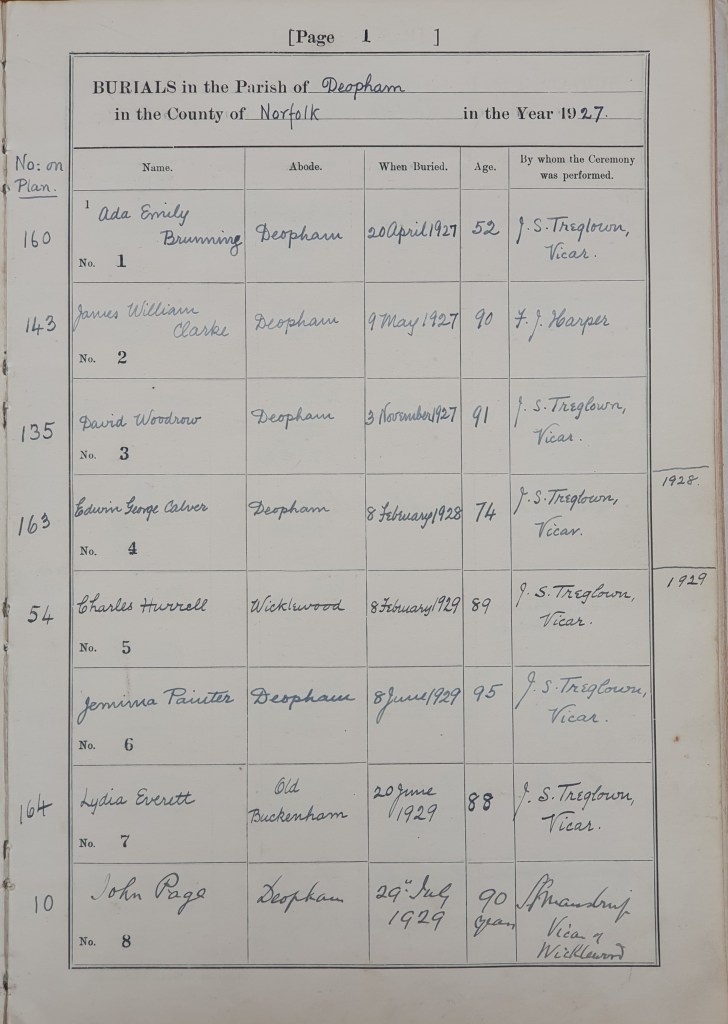 [Page 1 ]
BURIALS in the Parish of Deopham
in the County of Norfolk in the Year 1927.
No: on Plan. Name. Abode. When Buried. Age. By whom the Ceremony was performed.
1 Ada Emily
160 Brunning Deopham 20 April 1927 52 J. S. Treglown,
Vicar.
No. 1
James William
143 Clarke Deopham 9 May 1927 90 F. J. Harper
No. 2
135 David Woodrow Deopham 3 November 1927 91 J. S. Treglown,
Vicar.
No. 3
1928.
163 Edwin George Calver Deopham 8 February 1928 74 J. S. Treglown,
Vicar.
No. 4
1929
54 Charles Hurrell Wicklewood 8 February 1929 89 J. S. Treglown,
Vicar.
No. 5
Jemima Painter Deopham 8 June 1929 95 J. S. Treglown,
Vicar.
No. 6
164 Lydia Everett Old 20 June 88 J. S. Treglown,
Buckenham 1929 Vicar.
No. 7
10 John Page Deopham 29" July 90
1929 years Vicar of
No. 8 Wicklewood